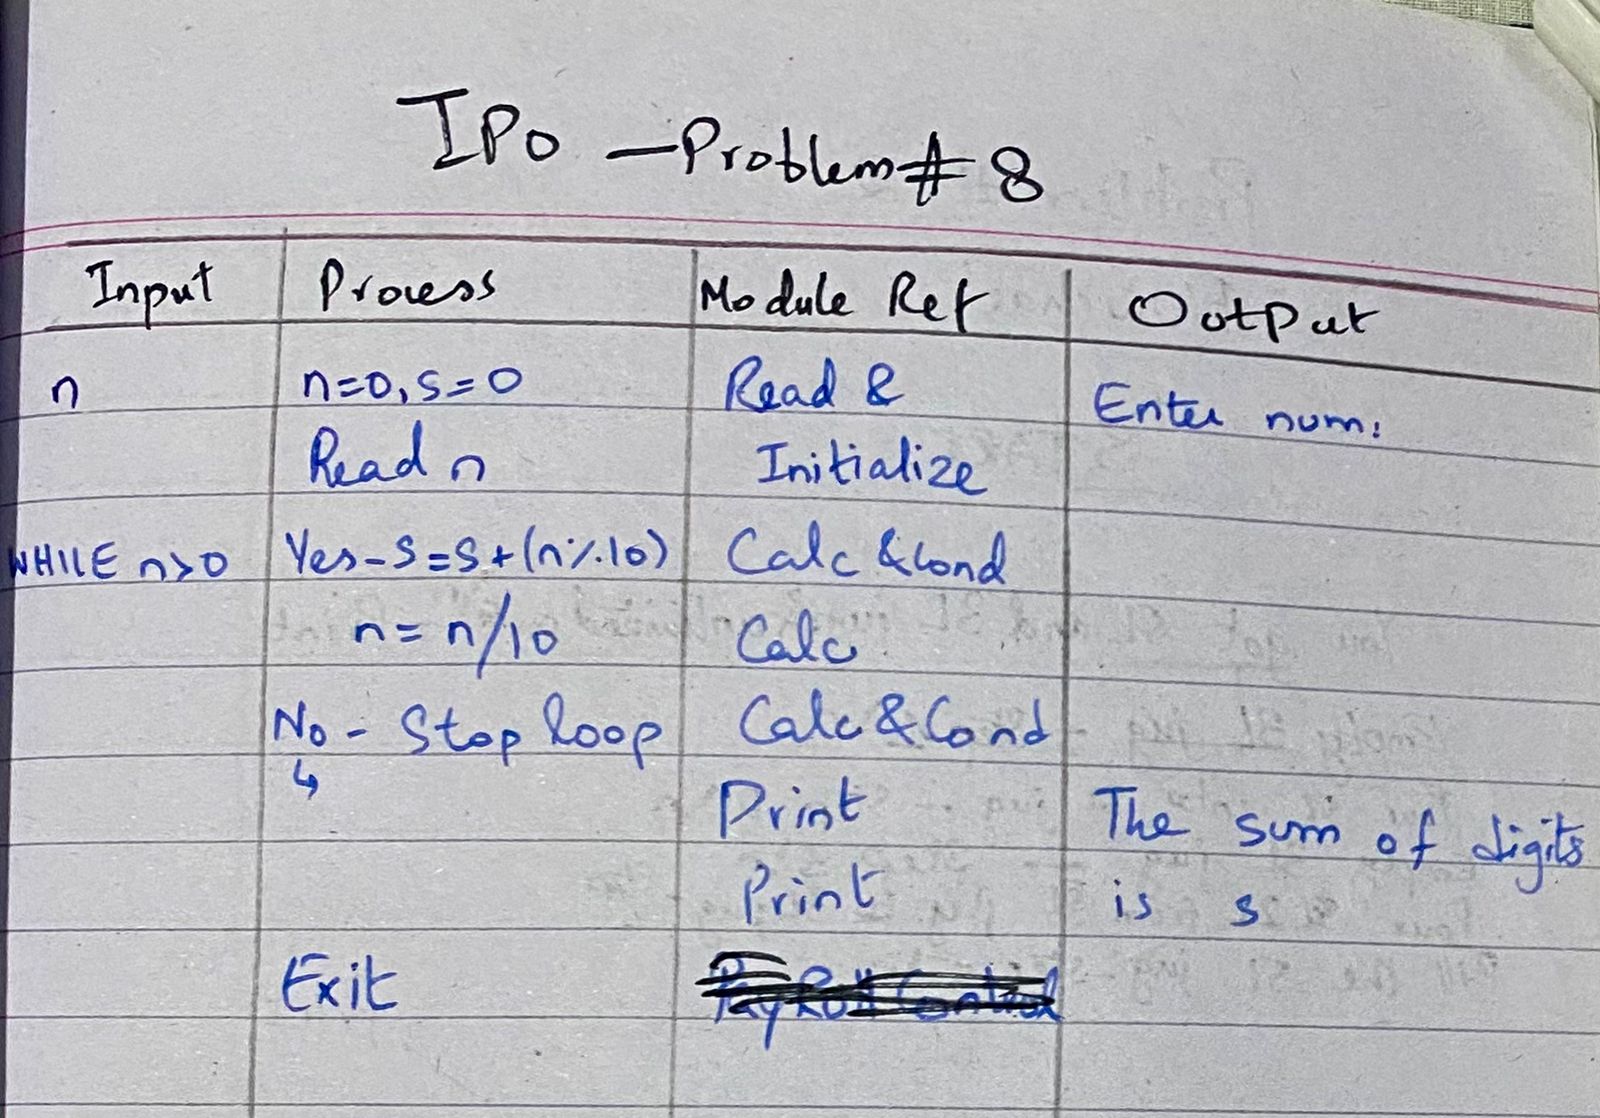 IPO - Problem # 8
Input Process Module Ref Output
n n=0, s=0 Read & Enter num:
Read n Initialize
WHILE n>0 Yes - S=S+(n%10) Calc & Cond
n = n/10 Calc
No - Stop loop Calc & Cond
↳ Print The sum of digits
Print is s
Exit